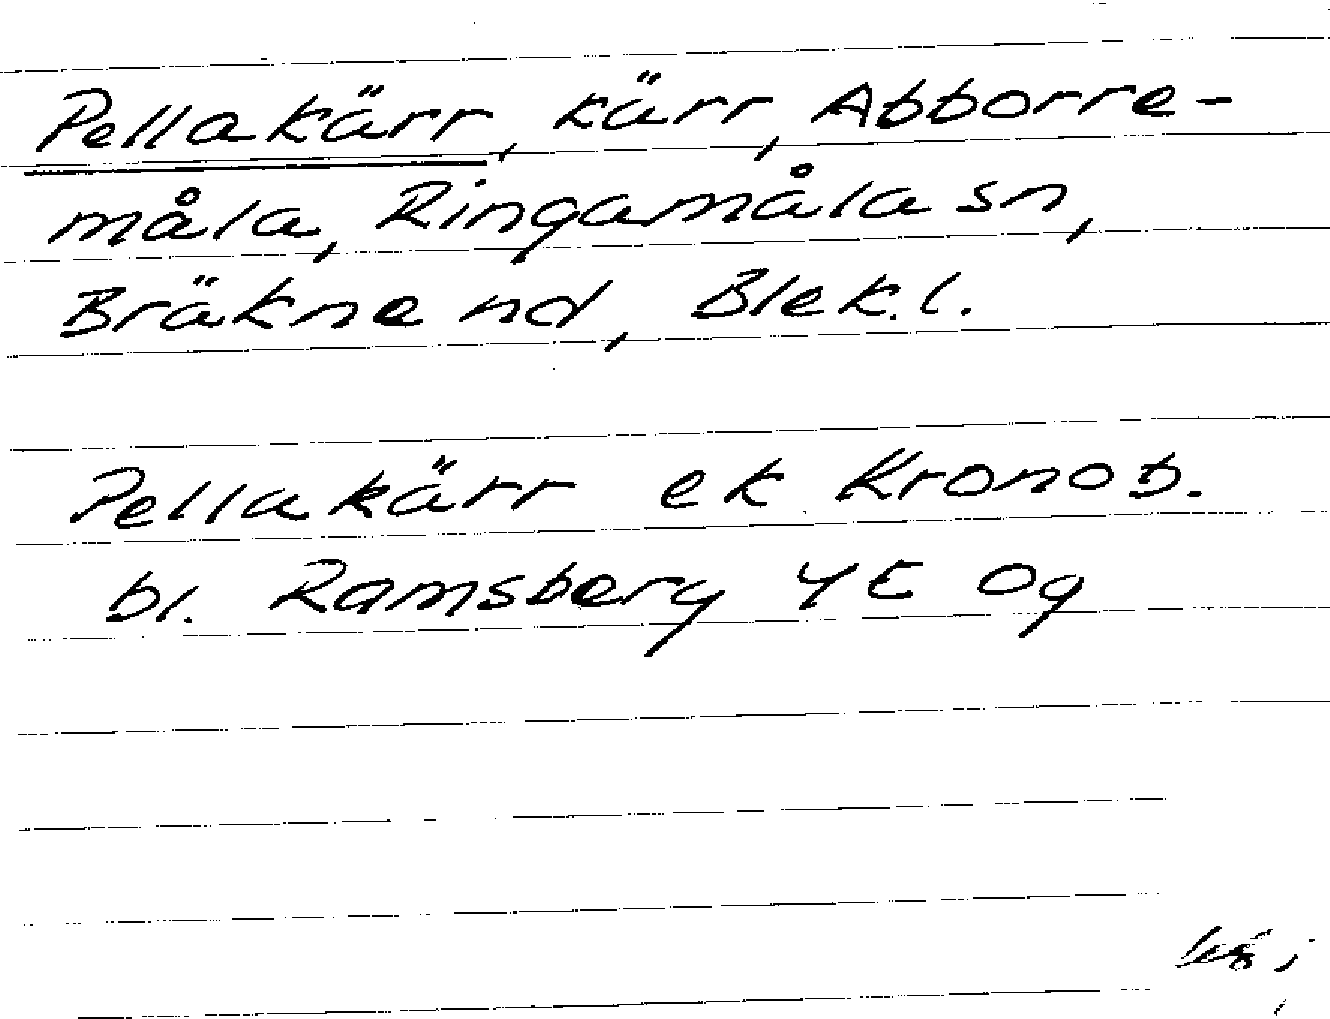 Pellakärr, kärr, Abborre-
måla, Ringamåla sn,
Bräkne hd, Blek. l.
Pellakärr ek Kronob.
bl. Ramsberg 4E Og